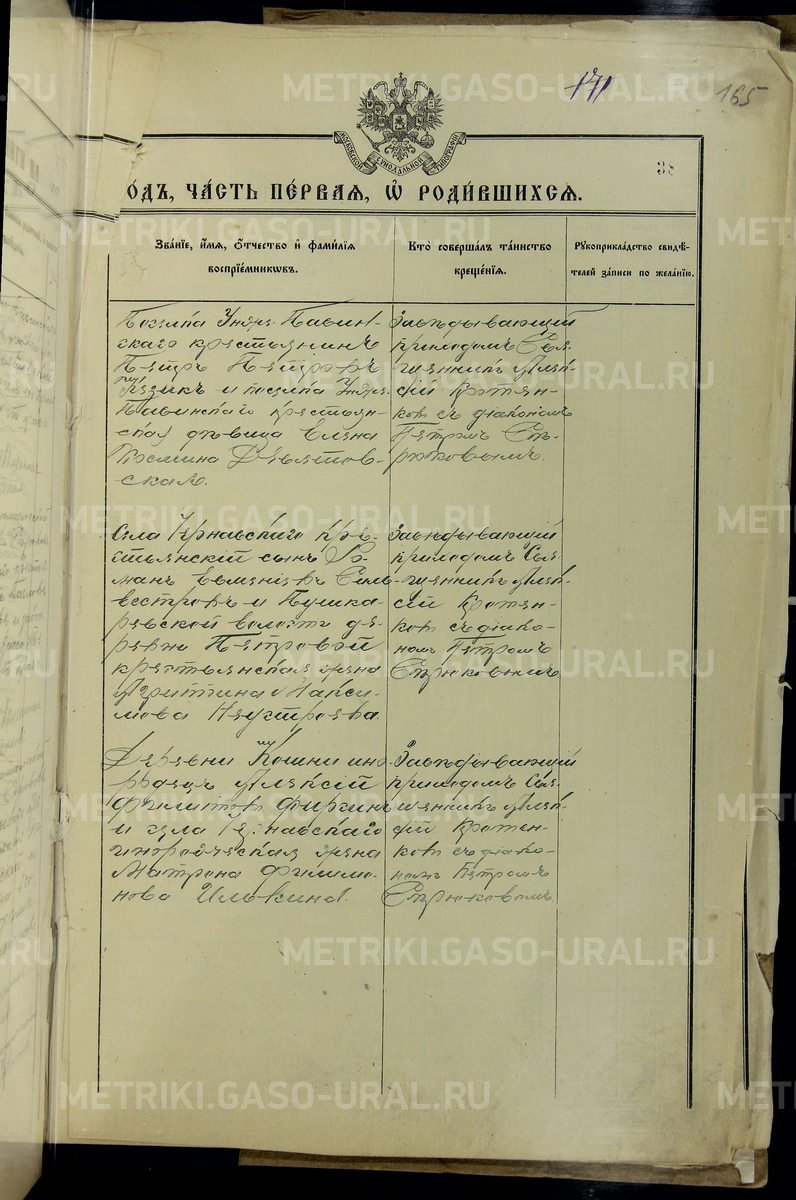 171
165
38
МОСКОВСКОЙ СѴНОДАЛЬНОЙ ТИПОГРАФІИ
ОДЪ, ЧА́СТЬ ПЕ́РВАЯ, Ѡ РОДИ́ВШИХСЯ.
ЗВА́НІЕ, И́МЯ, О́ТЧЕСТВО И́ ФАМИ́ЛІЯ
ВОСПРІЕ́МНИКѠВЪ.
КТО̀ СОВЕРША́ЛЪ ТА́ИНСТВО
КРЕЩЕ́НІЯ.
РУКОПРИКЛА́ДСТВО СВИДѢ́-
ТЕЛЕЙ ЗА́ПИСИ ПО ЖЕЛА́НІЮ.
Поселка Павин-
скаго крестьянинъ
Петръ Петровъ
и поселка
Павинскаго крестьян-
ская дѣвица Елена
Козмина Девятов-
ская.
Завѣдывающій
приходомъ Свя-
щенникъ Алек-
сій Кротен-
ковъ съ діакономъ
Петромъ Стрюковымъ.
Села Чернавскаго кре-
стьянскій сынъ Ро-
манъ Евменіевъ Силь-
вестровъ и Пушка-
ревской волости де-
ревни Петровой
крестьянская жена
Агриппина Макси-
мова Неустроева.
Завѣдывающій
приходомъ Свя-
щенникъ Алек-
сій Кротен-
ковъ съ діако-
номъ Петромъ
Стрюковымъ
Деревни Кошни ино-
родецъ Алексій
Филиповъ Фиргинъ
и села Чернавскаго
инородческая жена
Матрона Филимо-
нова Илькина.
Завѣдывающій
приходомъ Свя-
щенникъ Алек-
сій Кротен-
ковъ съ діако-
номъ Петромъ
Стрюковымъ
METRIKI.GASO-URAL.RU